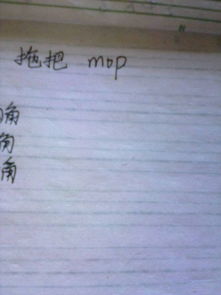 拖把 mop
角
角
角